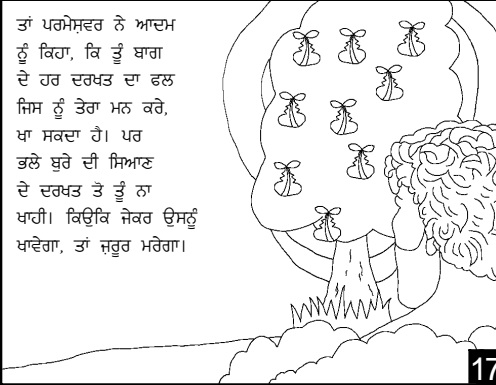 ਤਾਂ ਪਰਮੇਸ਼ਵਰ ਨੇ ਆਦਮ
ਨੂੰ ਕਿਹਾ, ਕਿ ਤੂੰ ਬਾਗ
ਦੇ ਹਰ ਦਰਖਤ ਦਾ ਫਲ
ਜਿਸ ਨੂੰ ਤੇਰਾ ਮਨ ਕਰੇ,
ਖਾ ਸਕਦਾ ਹੈ। ਪਰ
ਭਲੇ ਬੁਰੇ ਦੀ ਸਿਆਣ
ਦੇ ਦਰਖਤ ਤੋ ਤੂੰ ਨਾ
ਖਾਹੀ। ਕਿਉਕਿ ਜੇਕਰ ਉਸਨੂੰ
ਖਾਵੇਗਾ, ਤਾਂ ਜ਼ਰੂਰ ਮਰੇਗਾ।
17